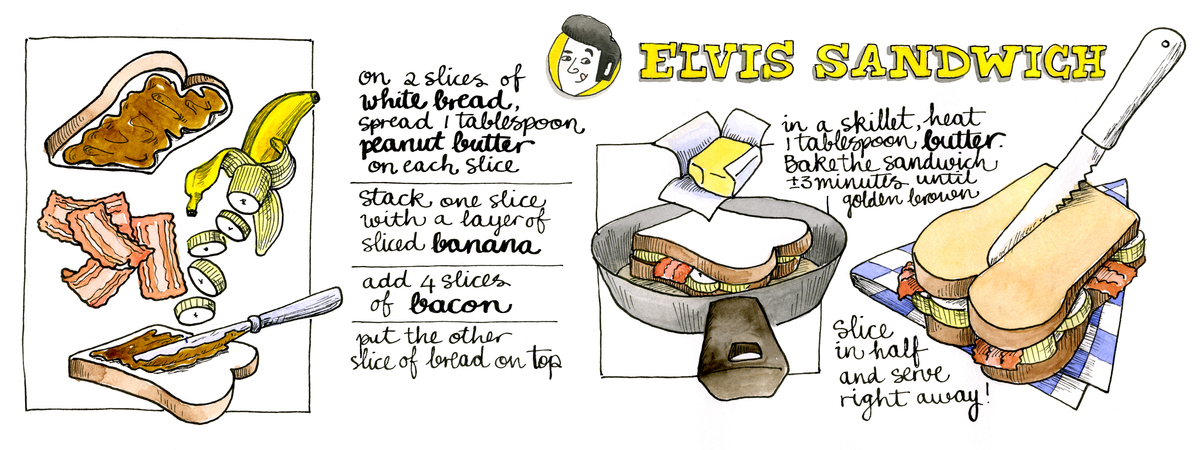 ELVIS SANDWICH
on 2 slices of
white bread,
spread 1 tablespoon
peanut butter
on each slice
Stack one slice
with a layer of
sliced banana
add 4 slices
of bacon
put the other
slice of bread on top
in a skillet, heat
1 tablespoon butter.
Bake the sandwich
±3 minutes until
golden brown
Slice
in half
and serve
right away!